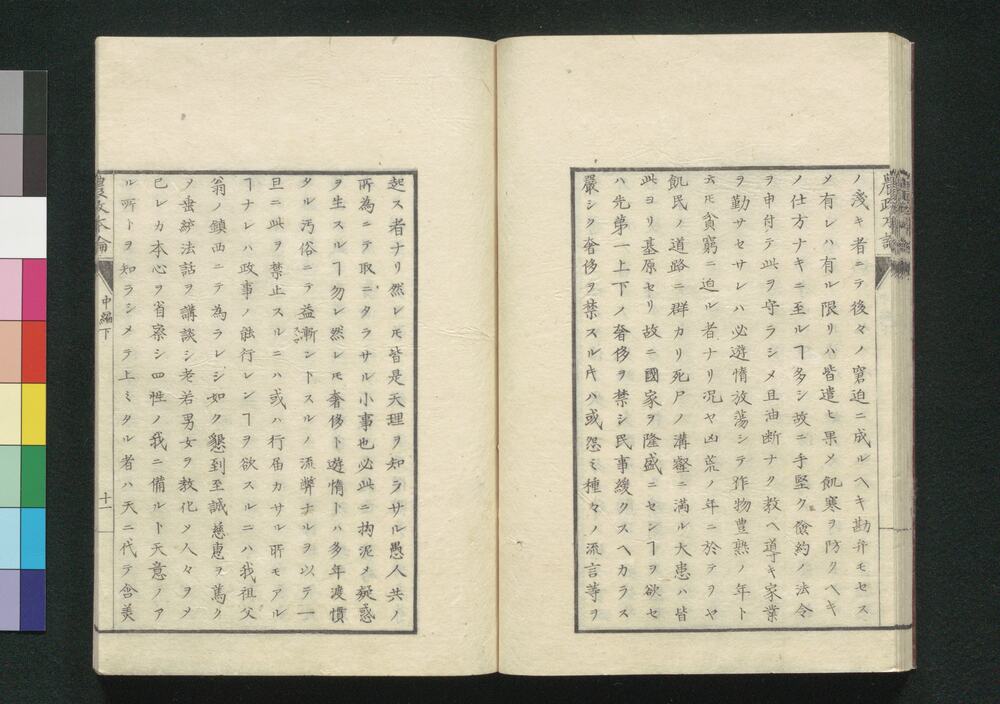 農政本論
ノ淺キ者ニテ後々ノ窘迫ニ成ルヘキ勘弁モセス
メ有レハ有ル限リハ皆遣ヒ果メ飢寒ヲ防クヘキ
ノ仕方ナキニ至ルヿ多シ故ニ手堅ク儉約ノ法令
ヲ申付テ此ヲ守ラシメ且油断ナク教ヘ導キ家業
ヲ勤サセサレハ必遊惰放蕩シテ作物豊熟ノ年ト
雖ㄗ貧窮ニ迫ル者ナリ況ヤ凶荒ノ年ニ於テヲヤ
飢民ノ道路ニ群カリ死尸ノ溝壑ニ満ル大患ハ皆
此ヨリ基原セリ故ニ國家ヲ隆盛ニセンヿヲ欲セ
ハ先第一上下ノ奢侈ヲ禁シ民事緩クスヘカラス
嚴シク奢侈ヲ禁スルキハ或怨ミ種々ノ流言等ヲ
起ス者ナリ然レㄗモ皆是天理ヲ知ラサル愚人共ノ
所為ニテ取ニタラサル小事也必此ニ拘泥メ疑惑
ヲ生スルヿ勿レ然レㄗモ奢侈ト遊惰トハ多年浸慣
タル汚俗ニテ益漸ントスルノ流弊ナルヲ以テ一
旦ニ此ヲ禁止スルニハ或ハ行届カサル所モアル
ヿナレハ政事ノ能行レンヿヲ欲スルニハ我祖父
翁ノ鎮西ニテ為ラレシ如ク懇到至誠慈惠ヲ篤ク
ヲ垂綍法話ヲ講談シ老若男女ヲ教化メ人々ヲメ
已レカ本心ヲ省察シ四性ノ我ニ備ルト天意ノア
ル所トヲ知ラシメテ上ミタル者ハ天ニ代テ含美
農政本論
中編下
十一